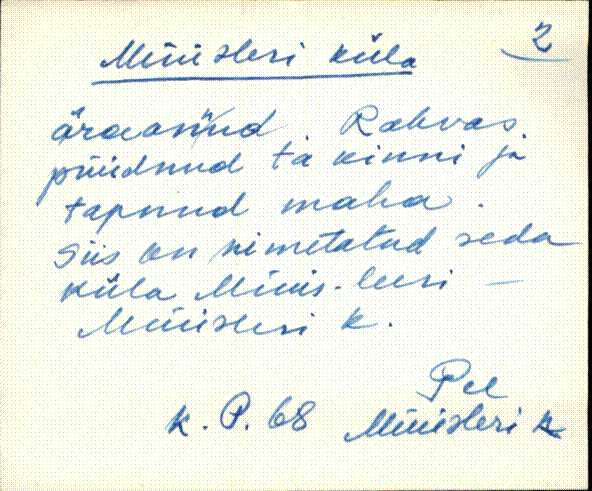 2
Müüsleri küla
äraannud. Rahvas
püüdnud ta kinni ja
tapnud maha.
Siis on nimetatud seda
küla Müüs-leeri —
Müüsleri k.
Pee
K. P. 68 Müüsleri k